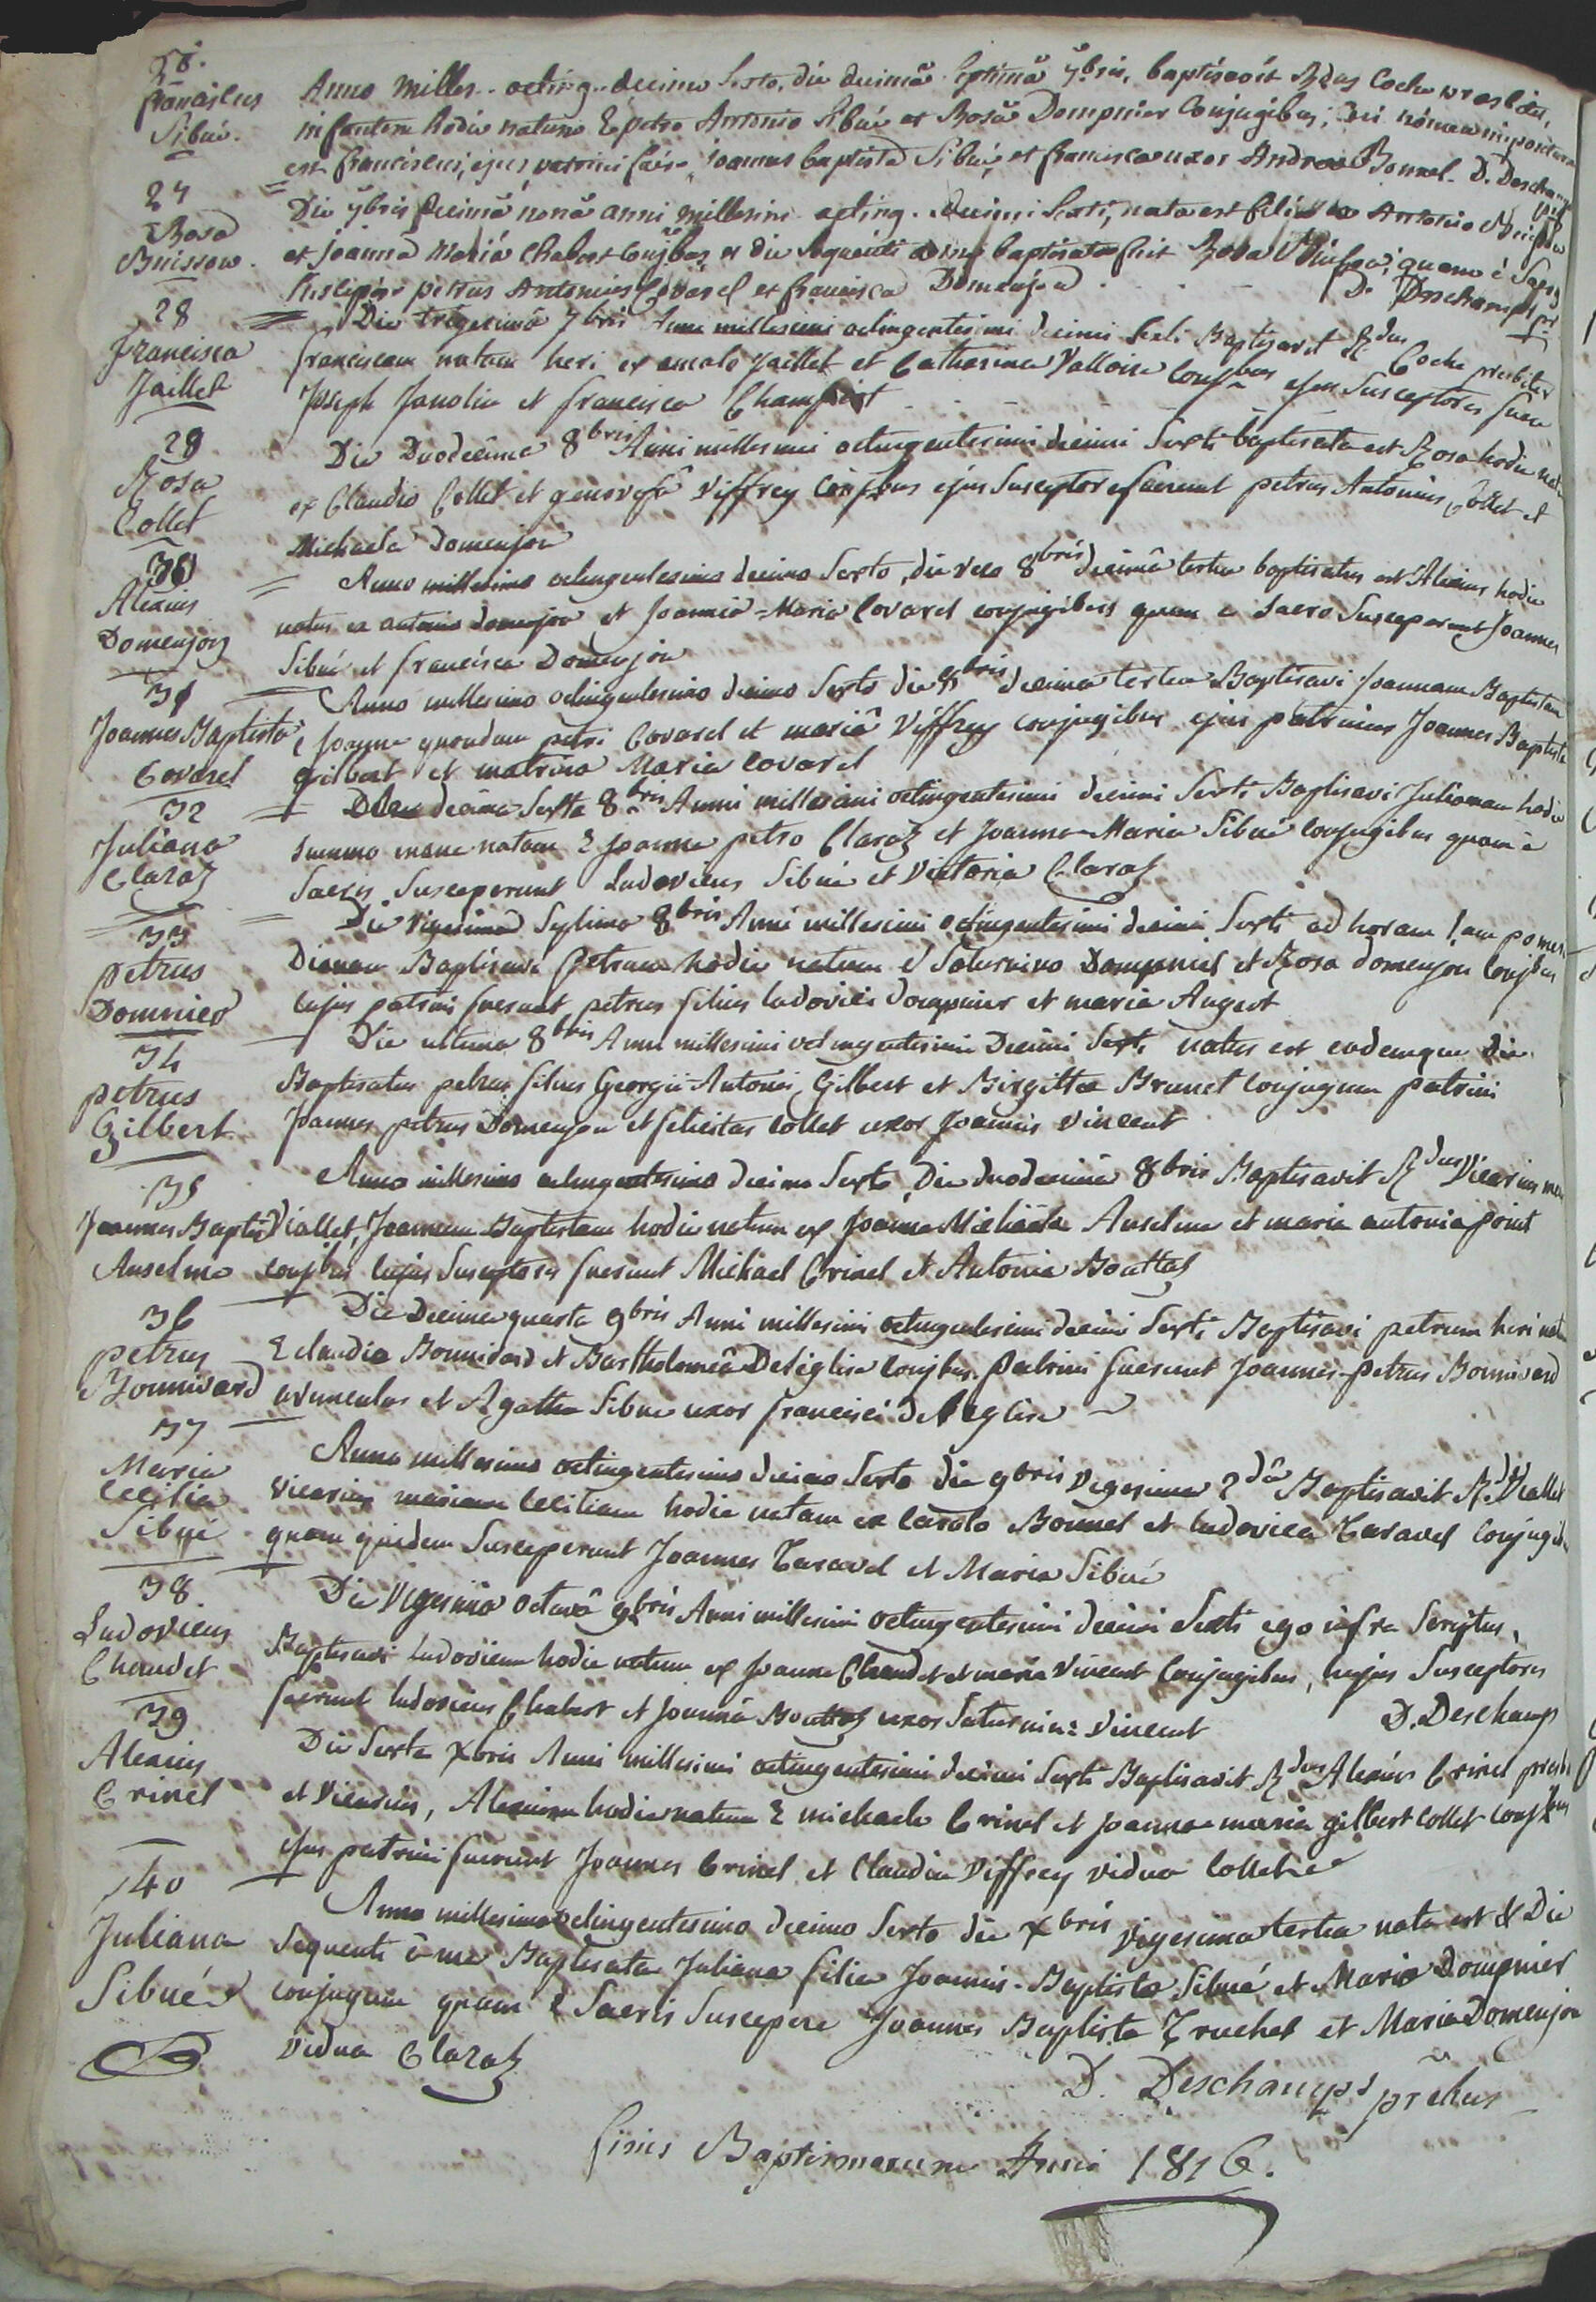 franciscus
Sibué.
Anno Milles. octing. decimo Sexto, die decimâ Septimâ 7bris, baptisavit Rdus Coche
infantem hodie natum Petro Antonio Sibué et Rosâ Dompnier Conjugibus; Cui nomen impositum
est franciscus, ejus patrini fuére joannes baptista Sibué et francisca uxor Andreæ Bonnel. D. Deschamps
27
Rosa
Buisson.
Die 7bris decimâ nonâ anni Millesimi octing. decimi Sexti, nata est filia Antonio
et joanna Mariâ Chabert et die Sequenti baptisata fuit Rosa quam è Sacro
petrus Antonius Covarel et francisca Domenjon D. Deschamps
28
Francisca
Jaillet
Die trigesimâ 7bris Anni millesimi octingentesimi decimi Sexti Baptisavit Rdus Coche presbiter
franciscam natam heri ex amato Jaillet et Catharina Valloire ejus Susceptores
Joseph Janolin et francisca
29
Rosa
Collet
Die Duodecima 8bris Anni millesimi octingentesimi decimi Sexti baptisata est Rosa hodie
ex Claudio Collet et genovefâ Viffrey conjbus ejus Susceptores fuerunt petrus Antonius Collet et
Michaela Domenjon
30
Alexius
Domenjon
Anno millesimo octingentesimo decimo Sexto, die vero 8bris decimâ tertia baptisatus est Alexius hodie
natus ex antonio domenjon et Joanna-Maria Covarel conjugibus quem e Sacro Susceperunt Joannes
Sibué et francisca Domenjon
31
Joannes Baptista
Covarel
Anno millesimo octingentesimo decimo Sexto die 8bris decima tertia Baptisavi Joannem Baptistam
e Joanne quondam petri Covarel et mariâ Viffrey conjugibus ejus patrinus Joannes Baptista
gilbert et matrina Maria Covarel
32
Juliana
Claraz
decima Sexta 8bris Anni millesimi octingentesimi decimi Sexti Baptisavi Julianam hodie
summo mane natam E Joanne petro Claraz et Joanna-Maria Sibué conjugibus quam è
Sacris Susceperunt Ludovicus Sibué et Victoria Claraz
33
petrus
Domnier
Die Vigesima Septima 8bris Anni millesimi octingentesimi decimi Sexti ad horam
Baptisavi Petrum hodie natum è Saturnino Dompnier et Rosa domenjon conjbus
cujus patrini fuerunt petrus filius ludovici dompnier et maria Augert
34
petrus
Gilbert
Die ultima 8bris Anni millesimi octingentesimi Decimi Sexti natus est eodemque die
Baptisatus petrus filius Georgii-Antonii Gilbert et Birgittæ Brunet conjugum patrini
Joannes petrus Domenjon et felicitas Collet uxor Joannis Vincent
35
Joannes Baptis
Anselme
Anno millesimo octingentesimo decimo Sexto, Die duodecimâ 8bris Baptisavit Rdus Vicarius
Viallet, Joannem Baptistam hodie natum ex Joanne Michaele Anselme et maria antonia point
conjbus cujus Susceptores fuerunt Michael Crinel et Antonia Bouttaz
36
petrus
Bonnivard
Die Decima quarta 9bris Anni millesimi octingentesimi decimi Sexti Baptisavi petrum heri
E claudio Bonnivard et Bartholomeâ Deléglise conjbus. Patrini fuerunt Joannes-petrus Bonnivard
avunculus et Agatha Sibué uxor francisci deléglise
37
Maria
Cecilia
Sibué
Anno millesimo octingentesimo decimo Sexto die 9bris Vigesima 2dâ Baptisavit Rd Viallet
Vicarius mariam Ceciliam hodie natam ex Carolo Bonnel et ludovica Taravel conjugibus
quam quidem Susceperunt Joannes Taravel et Maria Sibué
38
Ludovicus
Chaudet
Die Vigesima Octavâ 9bris Anni millesimi octingentesimi decimi Sexti ego infra Scriptus,
Baptisavi Ludovicum hodie natum ex Joanne Chaudet et maria Vincent Conjugibus, hujus Susceptores
fuerunt ludovicus Chabert et Joanna Bouttaz uxor Saturnini Vincent D. Deschamp
39
Alexius
Crinel
Die Sexta Xbris Anni millesimi octingentesimi decimi Sexti Baptisavit Rdus Alexius Crinel
et Vicarius, Alexium hodie natum E michaele Crinel et joanna-maria gilbert collet conjbus
ejus patrini fuerunt Joannes Crinel et Claudia Viffrey vidua Collet
40
Juliana
Sibué
Anno millesimo octingentesimo decimo Sexto die Xbris Vigesima tertia nata est & Die
Sequenti à me Baptisata Juliana filia Joannis-Baptista Sibué et Maria Dompnier
conjugum quam è Sacris Suscepere Joannes Baptista Truchet et Maria Domenjon
vidua Claraz
D. Deschamps
finis Baptismorum Anni 1816.